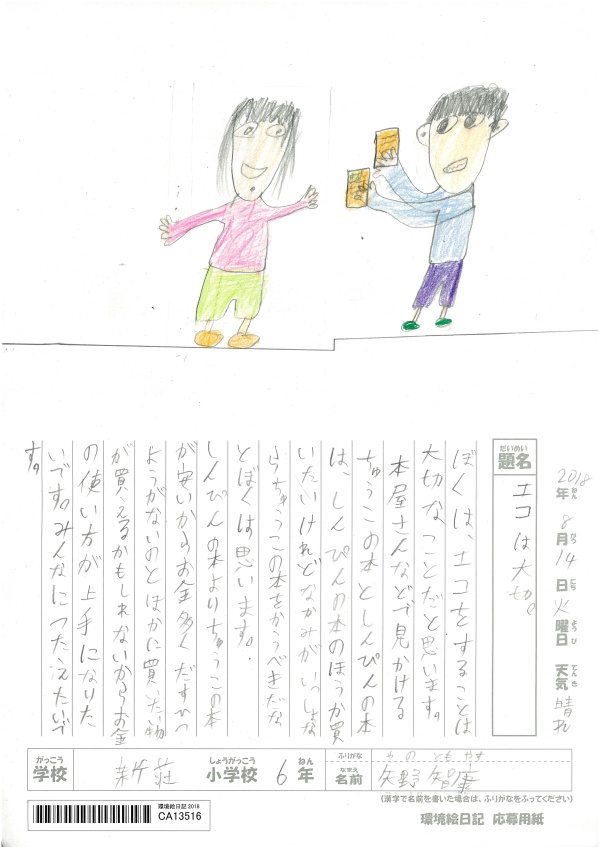 2018年 8月 14日 火曜日 天気 晴れ
ねん がつ にち ようび てんき
だいめい
題名
エコは大切。
ぼくは、エコをすることは
大切なことだと思います。
本屋さんなどで見かける
ちゅうこの本としんぴんの本
は、しんぴんの本のほうが買
いたいけれどなかみがいっしょな
らちゅうこの本をかうべきだな
とぼくは思います。
しんぴんの本よりちゅうこの本
が安いからお金多くだすひつ
ようがないのとほかに買いたい物
が買えるかもしれないからお金
の使い方が上手になりた
いです。みんなにつたえたいで
す。
がっこう
学校
新荘
しょうがっこう
小学校
6
ねん
年
ふりがな
なまえ
名前
のともやす
矢野 智康
(漢字で名前を書いた場合は、ふりがなをふってください)
環境絵日記 2018
CA13516
環境絵日記 応募用紙